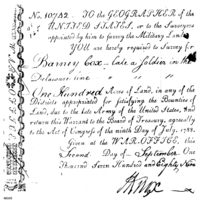 No. 10782. TO the GEOGRAPHER of the
UNITED STATES, or to the Surveyor
appointed by him to survey the Military Lands
YOU are hereby required to survey for
Barney Cox late a Soldier in the
Delaware line
One Hundred Acres of Land, in any of the
Districts appropriated for satisfying the Bounties of
Land, due to the late Army of the United States, And
return this Warrant to the Board of Treasury, agreeably
to the Act of Congress of the ninth Day of July, 1788.
Given at the WAR-OFFICE, this
Second Day of September One
Thousand Seven Hundred and Eighty Nine
HKnox